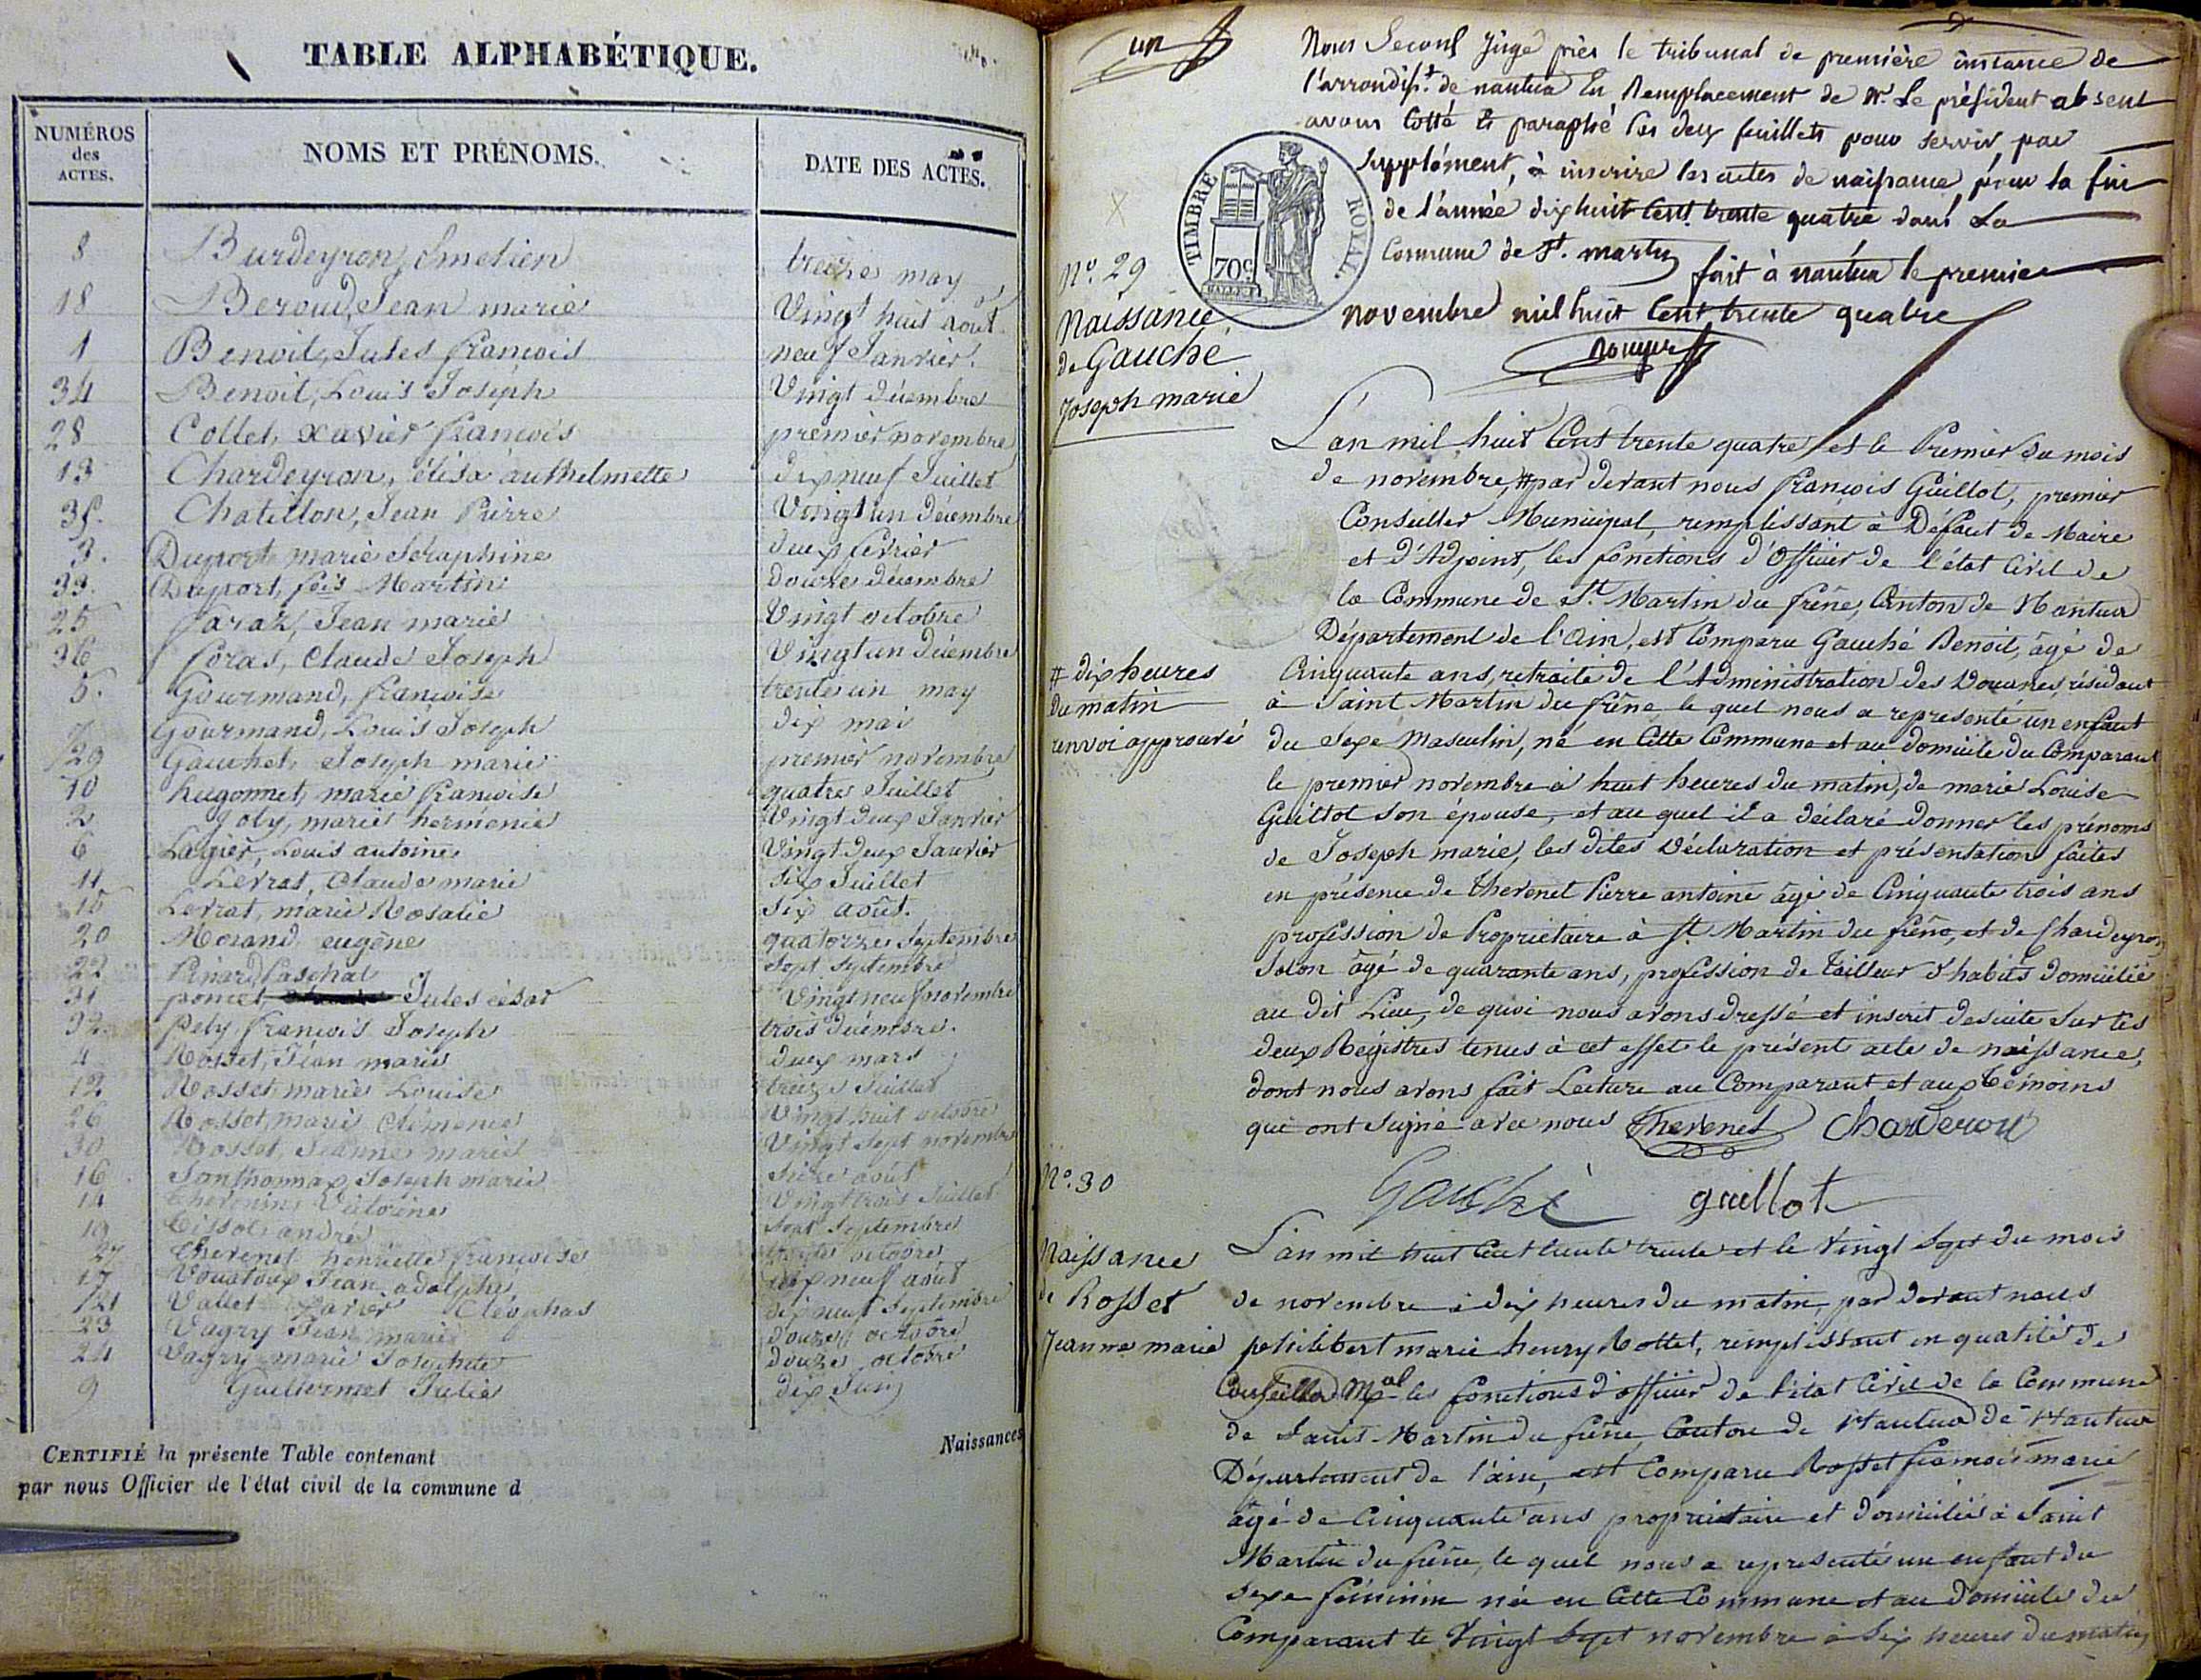 TABLE ALPHABÉTIQUE.
NUMÉROS des ACTES.
NOMS ET PRÉNOMS.
DATE DES ACTES.
8 Burdeyron, treize may
18 Beroud, Jean marie Vingt huit aout
1 Benoit, Jules françois neuf Janvier.
34 Benoit, Louis Joseph Vingt décembre
28 Collet, xavier françois premier novembre
13 Chardeyron, élisa anthelmette dix neuf Juillet
35. Chatillon, Jean Pierre Vingt un décembre
3. Duport marie Séraphine deux février
33. Duport, fois Martin douze décembre
25 faraz, Jean marie Vingt octobre
36 foras, Claude Joseph Vingt un décembre
5. Gourmand, françoise trente un may
7 Gourmand, Louis Joseph dix mai
29 Gauchet, Joseph marie premier novembre
10 hugonnet, marie françoise quatre Juillet
2 Joly, marie hermenie Vingt deux Janvier
6 Lagier, Louis antoine Vingt deux Janvier
11 Levrat, Claude marie six Juillet
15 Levrat, marie Rosalie six août.
20 Morand, eugène quatorze Septembre
22 Pinard Paschal Sept Septembre
31 poncet Jules césar Vingt neuf novembre
32 pely, françois Joseph trois décembre.
4 Rosset, Jean marie deux mars
12 Rosset, marie Louise treize Juillet
26 Rosset, marie Clémence Vingt huit octobre
30 Rosset, Jeanne marie Vingt Sept novembre
16 Sonthonnax Joseph marie août
14 Thevenin, Vingt trois Juillet
19 Tissot andré Sept Septembre
27 Thevenet henriette françoise octobre
17 Jean adolphe dix neuf août
21 Vallet Xavier Cléophas dix neuf Septembre
23 Vagry Jean marie douze octobre
24 Vagry marie Josephte douze octobre
9 Guillermet Julie dix Juin
CERTIFIÉ la présente Table contenant
par nous Officier de l'état civil de la commune d
Naissances
un
Nous Second Juge près le tribunal de première instance de
l'arrondisst. de nantua En Remplacement de Mr. Le président absent
avons Cotté et paraphé les deux feuillets pour servir par
supplément, à inscrire les actes de naissance pour la fin
de l'année dix huit cent trente quatre dans La
Commune de St. martin fait à nantua le premier
novembre mil huit cent trente quatre
TIMBRE ROYAL.
70c
No. 29
Naissance
de Gauché
Joseph marie
L'an mil huit Cent trente quatre et le Premier du mois
de novembre, # par devant nous françois Guillot, premier
Conseiller Municipal, remplissant à Défaut de Maire
et d'Adjoint, les fonctions d'Officier de l'état Civil de
la Commune de St. Martin du frêne, Canton de Nantua
Département de l'Ain, est Comparu Gauché Benoit, âgé de
Cinquante ans, retraité de l'Administration des Douanes résidant
à Saint Martin du frêne le quel nous a représenté un enfant
du Sexe Masculin, né en Cette Commune et au domicile du Comparant
le premier novembre à huit heures du matin, de marie Louise
Guillot son épouse, et au quel il a déclaré donner les prénoms
de Joseph marie, les dites Déclaration et présentation faites
en présence de thevenet Pierre antoine âgé de Cinquante trois ans
profession de Propriétaire à St. Martin du frêne, et de Chardeyron
Solon âgé de quarante ans, profession de tailleur d'habits domicilié
au dit Lieu, de quoi nous avons dressé et inscrit desuite Sur les
deux Régistres tenus à cet effet le présent acte de naissance,
dont nous avons fait Lecture au Comparant et aux témoins
qui ont signé avec nous Thevenet Charderon
# dix heures
du matin
renvoi approuvé
Gauché guillot
No. 30
Naissance
de Rosset
Jeanne marie
L'an mil huit Cent trente et le Vingt Sept du mois
de novembre à dix heures du matin par devant nous
philibert marie henry Rottet, remplissant en qualité de
Conseiller Mpal les fonctions d'officier de l'état Civil de la Commune
de Saint-Martin du frêne Canton de Nantua de Nantua
Département de l'ain, est Comparu Rosset françois marie
âgé de Cinquante ans propriétaire et domicilié à Saint
Martin du frêne, le quel nous a représenté un enfant du
sexe féminin née en Cette Commune et au domicile du
Comparant le Vingt Sept novembre à Six heures du matin